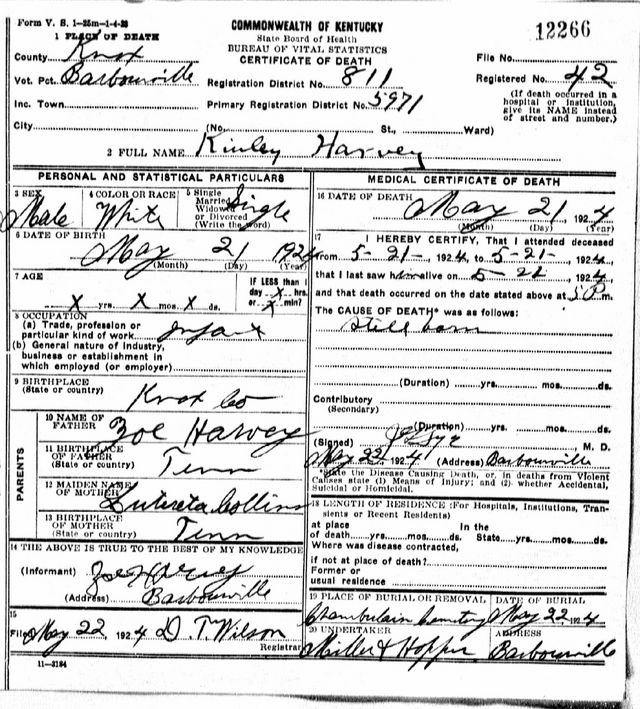 Form V. S. 1-25m-1-4-23
COMMONWEALTH OF KENTUCKY
State Board of Health
BUREAU OF VITAL STATISTICS
CERTIFICATE OF DEATH
12266
1 PLACE OF DEATH
County Knox
File No.
Vot. Pct. Barbourville
Registration District No. 811
Registered No. 42
(If death occurred in a hospital or institution, give its NAME instead of street and number.)
Inc. Town
Primary Registration District No. 5971
City
(No. St., Ward)
2 FULL NAME Kinley Harvey
PERSONAL AND STATISTICAL PARTICULARS
3 SEX Male
4 COLOR OR RACE White
5 Single Married Widowed or Divorced (Write the word) Single
6 DATE OF BIRTH May 21 1924
(Month) (Day) (Year)
7 AGE
IF LESS than 1
day X hrs.
X yrs. X mos. X ds. or X min?
8 OCCUPATION
(a) Trade, profession or
particular kind of work Infant
(b) General nature of Industry,
business or establishment in
which employed (or employer)
9 BIRTHPLACE
(State or country) Knox Co
PARENTS
10 NAME OF FATHER Zoe Harvey
11 BIRTHPLACE OF FATHER
(State or country) Tenn
12 MAIDEN NAME OF MOTHER Collins
13 BIRTHPLACE OF MOTHER
(State or country) Tenn
14 THE ABOVE IS TRUE TO THE BEST OF MY KNOWLEDGE
(Informant) Zoe Harvey
(Address) Barbourville
15
Filed May 22, 1924 D. T. Wilson
Registrar
11-3184
MEDICAL CERTIFICATE OF DEATH
16 DATE OF DEATH May 21, 1924
(Month) (Day) (Year)
17 I HEREBY CERTIFY, That I attended deceased
from 5-21-, 1924, to 5-21-, 1924,
that I last saw him alive on 5-21, 1924,
and that death occurred on the date stated above at 5 P m.
The CAUSE OF DEATH* was as follows:
Still born
(Duration) yrs. mos. ds.
Contributory
(Secondary)
(Duration) yrs. mos. ds.
(Signed) M. D.
May 22, 1924 (Address) Barbourville
*State the Disease Causing Death, or, in deaths from Violent
Causes state (1) Means of Injury; and (2) whether Accidental,
Suicidal or Homicidal.
18 LENGTH OF RESIDENCE (For Hospitals, Institutions, Transients or Recent Residents)
at place In the
of death yrs. mos. ds. State yrs. mos. ds.
Where was disease contracted,
if not at place of death?
Former or
usual residence
19 PLACE OF BURIAL OR REMOVAL DATE OF BURIAL
Chamberlain Cemetery May 22 1924
20 UNDERTAKER ADDRESS
Miller & Hopper Barbourville